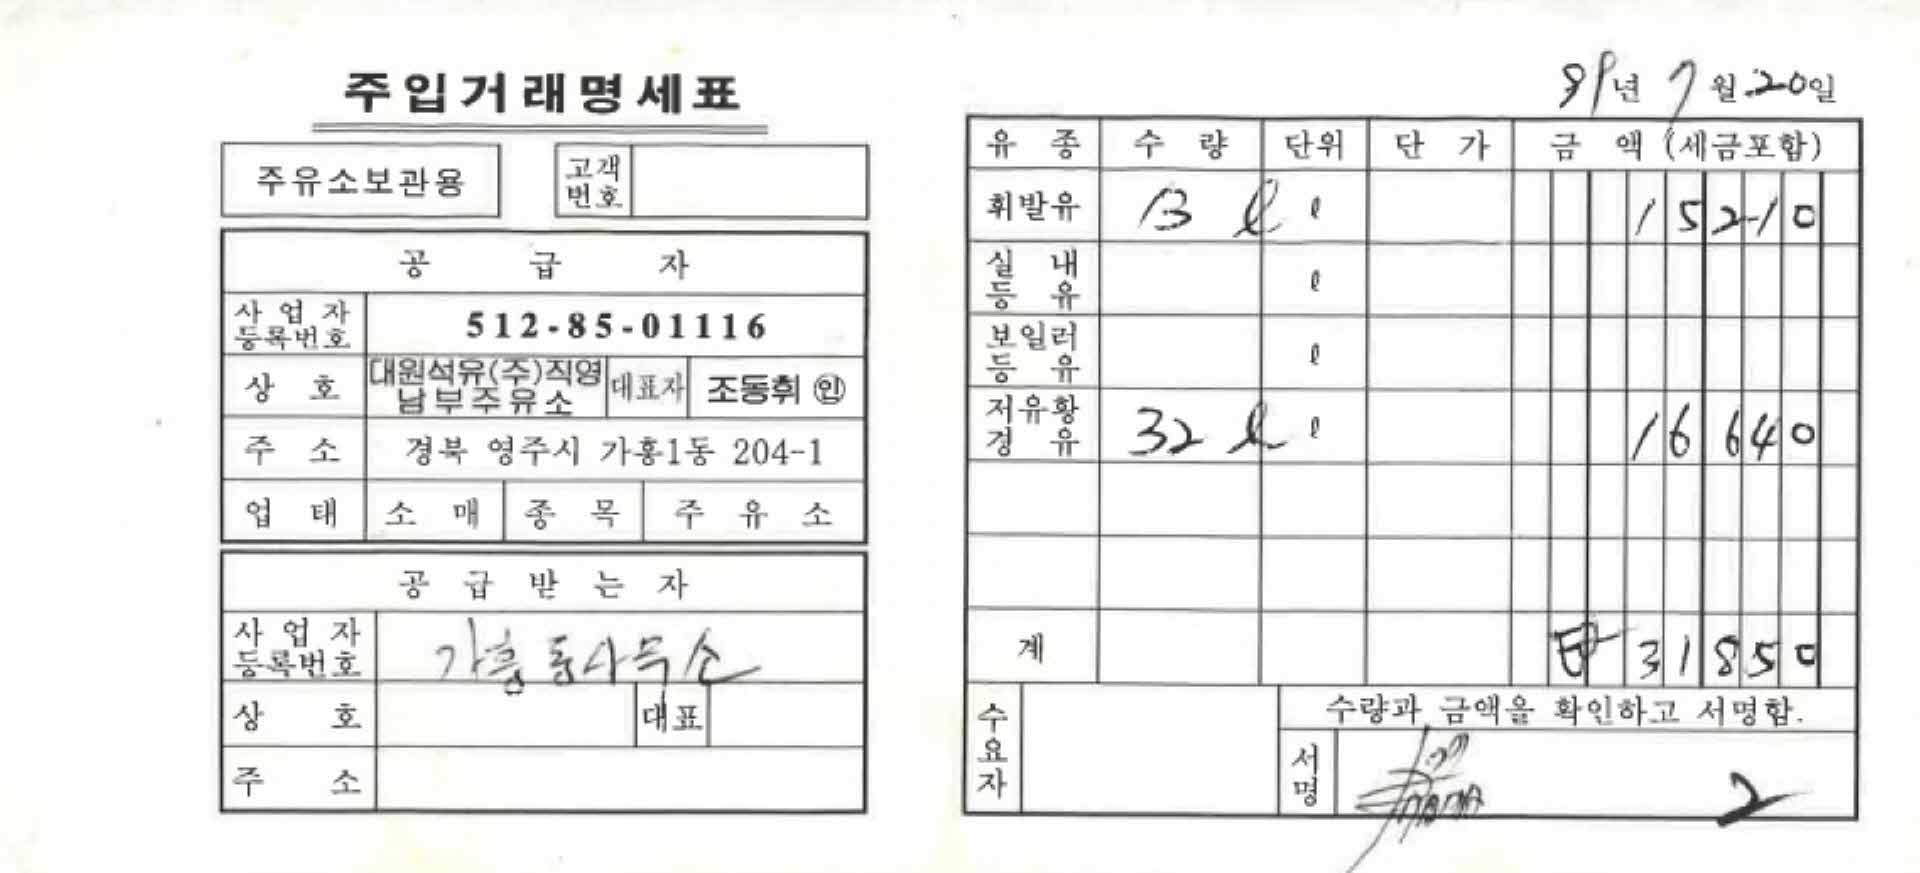 주입거래명세표
주유소보관용 고객번호
공급자
사업자등록번호 512-85-01116
상호 대원석유(주)직영 남부주유소 대표자 조동휘 ㊞
주소 경북 영주시 가흥1동 204-1
업태 소매 종목 주유소
공급받는자
사업자등록번호 가흥동사무소
상호 대표
주소
99년 7월 20일
유종 수량 단위 단가 금액(세금포함)
휘발유 13ℓ ℓ 15210
실내등유 ℓ
보일러등유 ℓ
저유황경유 32ℓ ℓ 16640
계 31850
수요자 수량과 금액을 확인하고 서명함.
서명 2